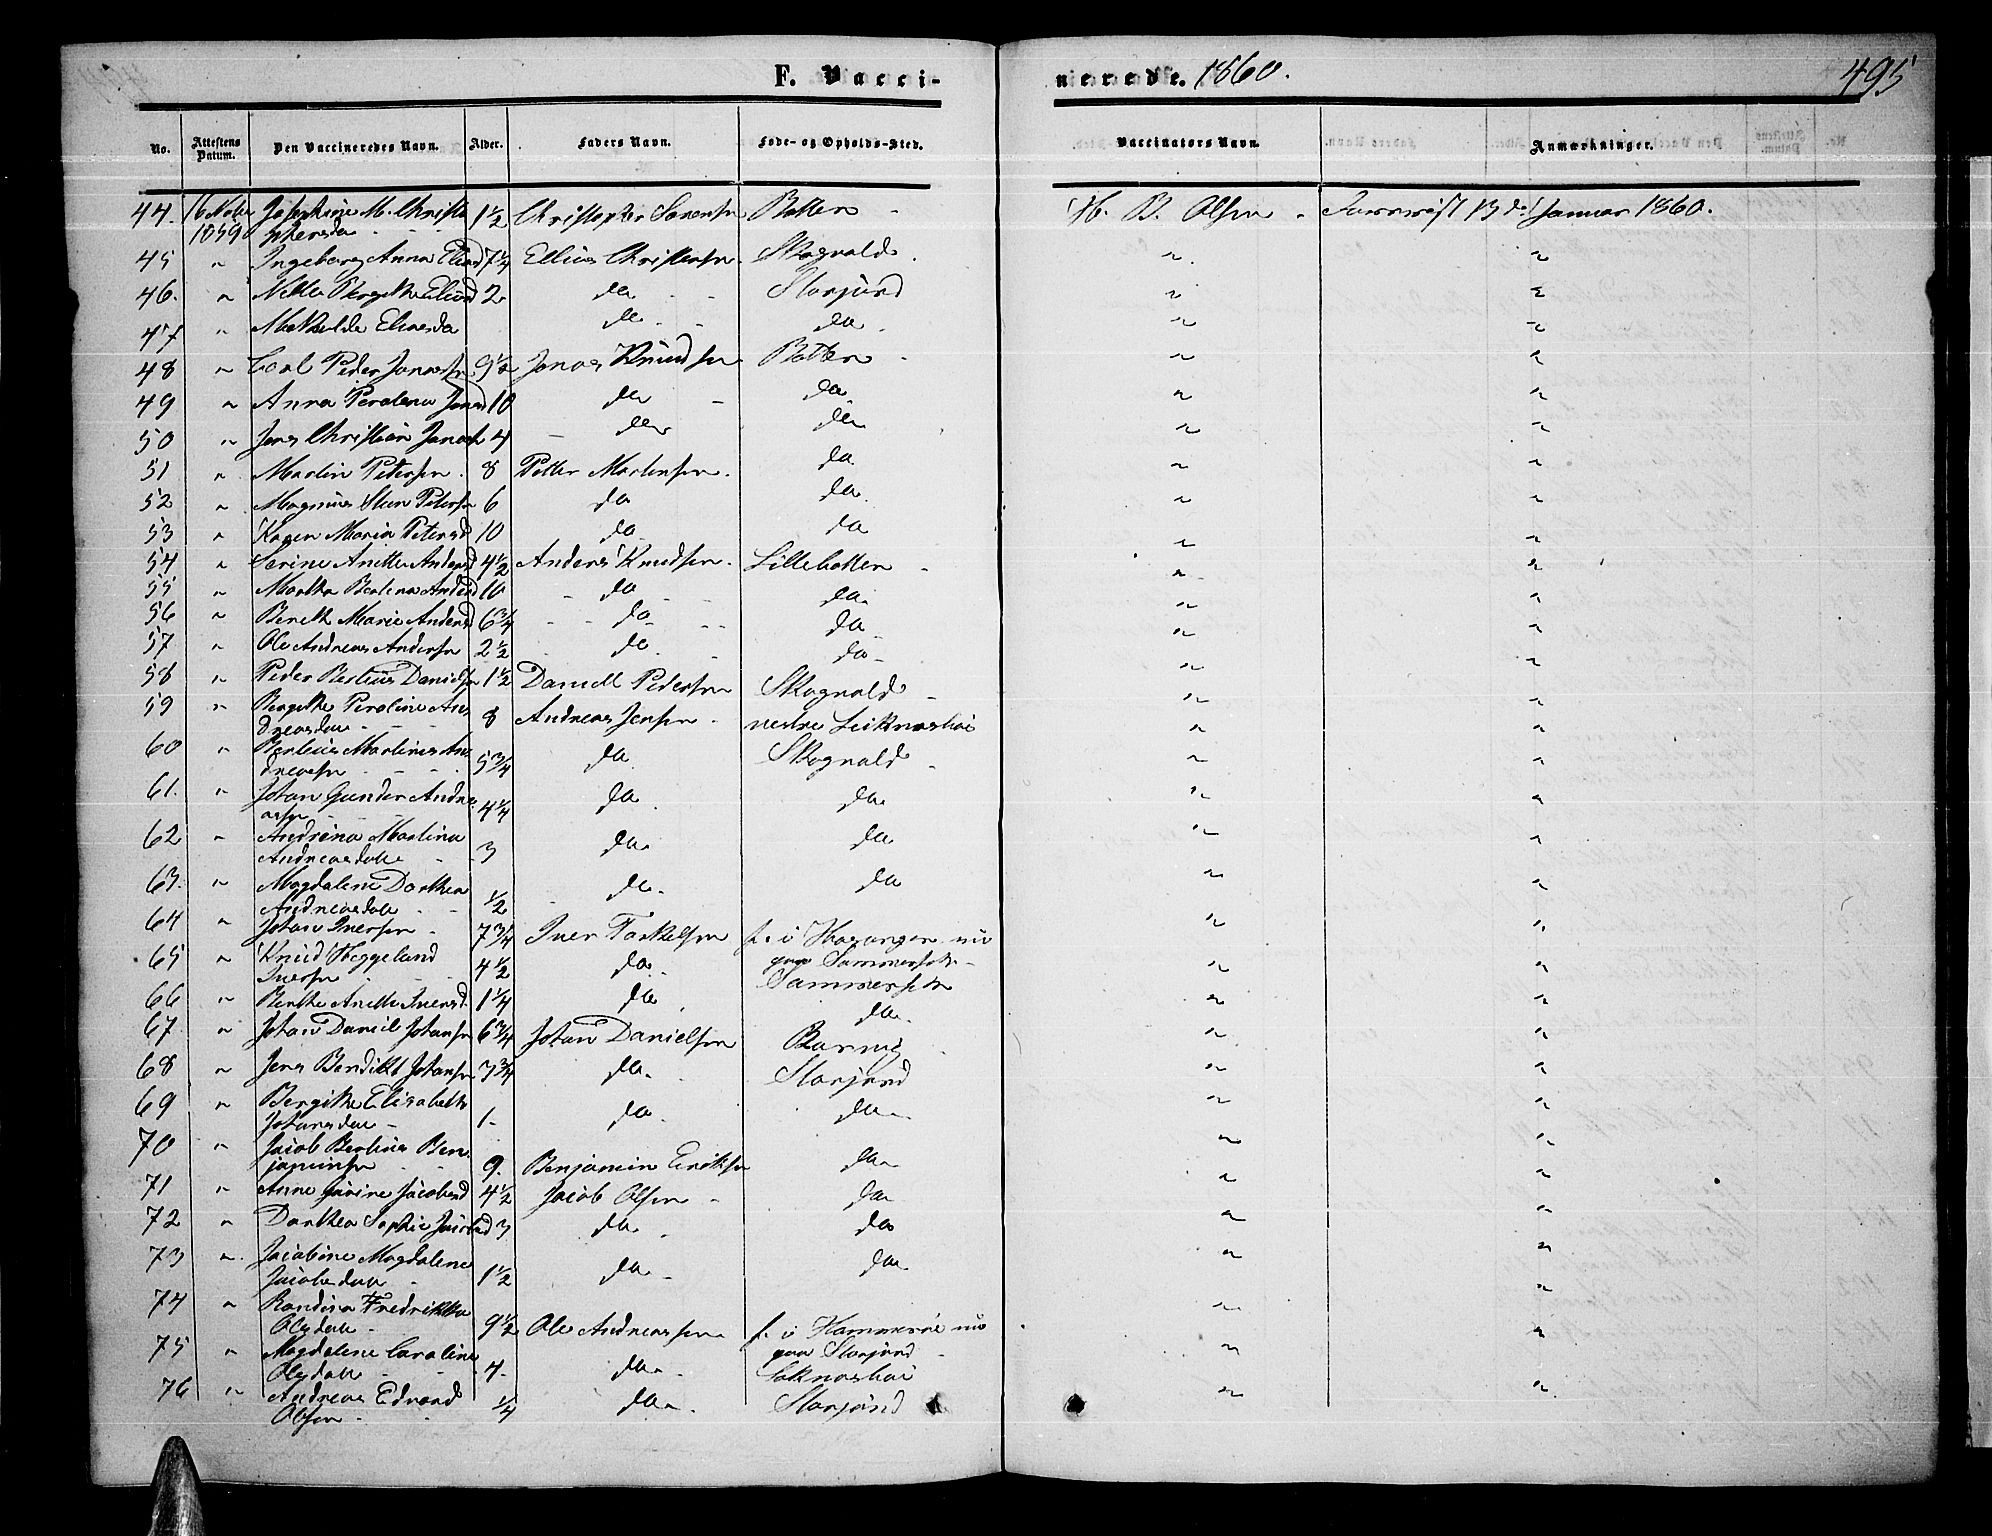 F. Vacci-
nerede. 1860.
495
No.
Attestens Datum.
Den Vaccineredes Navn.
Alder.
Faders Navn.
Føde- og Opholds-Sted.
Vaccinators Navn.
Anmærkninger.
44. 16 Novbr Josephine M. Christo 1½ Christopher Sørensen Botten H. B. Olsen Januar 1860.
1859 phersda
45 " Ingeborg Anna Eliasd 7¼ Ellias Christensen Skognald " "
46. " Eliasd 2 do Storjord " "
47 " Mathilda Eliasda do do " "
48 " Carl Peder Jonassn 9½ Jonas Knudsen Botten " "
49 " Anna Perolena Jonasd 10 do do " "
50 " Jens Christian Jonassn 4 do do " "
51 " Martin Petersen 8 Petter Martensen do " "
52 " Magnus Petersn 6 do do " "
53 " Karen Maria Petersd 10 do do " "
54 " Serine Anette Andersd 4½ Anders Knudsen Lillebotten " "
55 " Martha Berlena Andersd 10 do do " "
56 " Bereth Marie Andersd 6¾ do do " "
57 " Ole Andreas Andersen 2½ do do " "
58 " Peder Bertius Danielsn 1½ Daniell Pedersen Skognald " "
59 " Bergithe Peroline An-
dreasdatter 8 Andreas Jensen vestre " "
60 " Berteus Martinus An-
dreassn 5¾ do Skognald " "
61. " Johan Gunder Andre-
assn 4¼ do do " "
62 " Andrina Martina
Andreasdatt 3 do do " "
63. " Magdalene Dorthea
Andreasdatt ½ do do " "
64 " Johan Iversen 7¾ Iver Torkelsen f. i nu
65 " Knud Heggeland paa Sommerset
Iversen 4½ do Sommerset " "
66 " Berthe Anette Iversd. 1¼ do do " "
67. " Johan Daniel Johansn 6¾ Johan Danielsen " "
68 " Jens Bendikt Johansen 3¾ do Storjord " "
69 " Bergithe Elisabeth
Johansdatt 1 do do " "
70 " Jacob Bertius Ben-
jaminsn 9. Benjamin Eriksn do " "
71 " Anne Jacobsd 4½ Jacob Olsen do " "
72 " Dorthea Sophie Jacobsd 3 do do " "
73 " Jacobine Magdalene
Jacobsdatt 1½ do do " "
74 " Randina Fredrikka
Olsdatt 9½ Ole Andreassen f. i Hammerøe nu
75 " Magdalene Caroline paa Storjord
Olsdatt 4 do " "
76 " Andreas Edvard
Olsen ¼ do Storjord " "